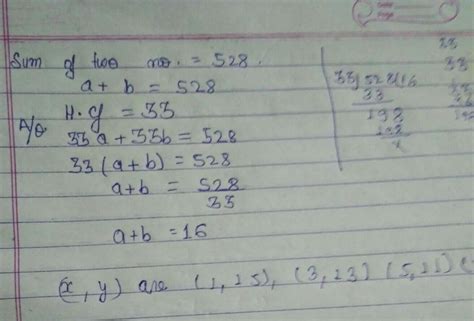 Sum of two no. = 528.
a + b = 528
A/Q H.cf = 33
33a + 33b = 528
33 (a+b) = 528
a+b = 528
33
a+b = 16
(x, y) are (1, 15), (3, 13) (5, 11) (
33) 528 (16
33
198
198
x
33
33